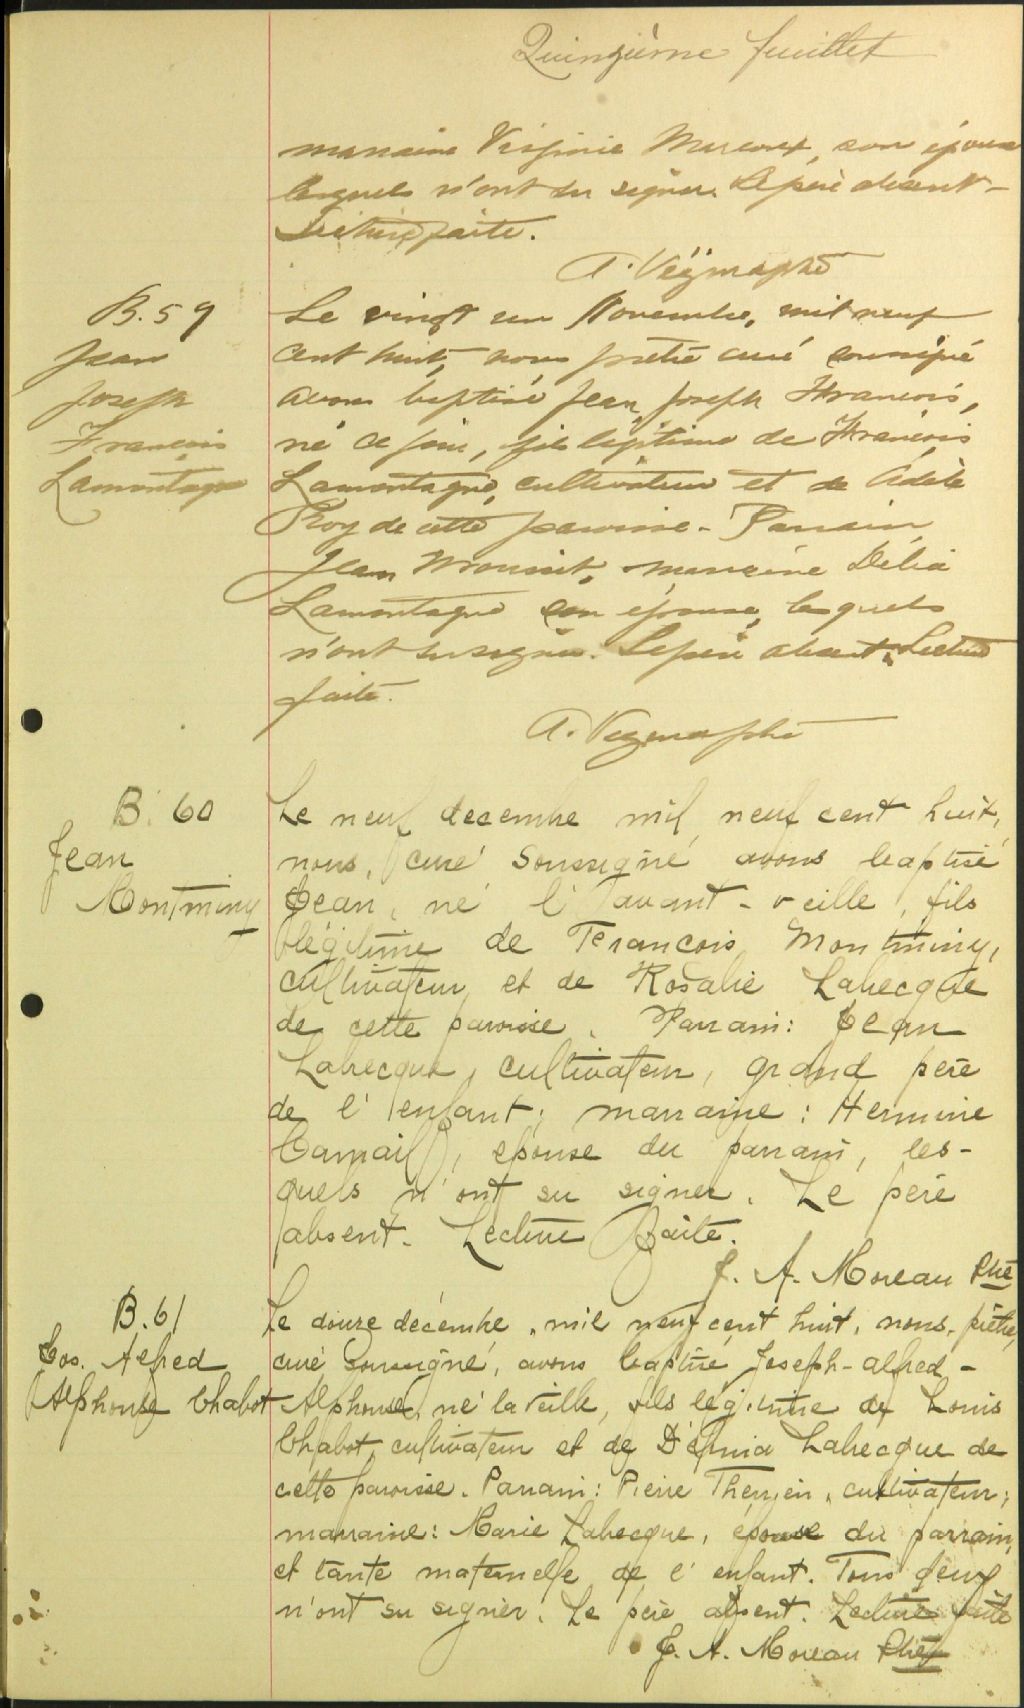 Quinzième feuillet
marraine Virginie Marcoux, son épouse
lesquels n'ont su signer. Le père absent -
Lecture faite.
B. 59
Jean
Joseph
Francois
Lamontagne
Le vingt un Novembre, mil neuf
cent huit, nous prêtre curé soussigné
avons baptisé Jean Joseph Francois,
né ce jour, fils légitime de Francois
Lamontagne, cultivateur et de Adèle
Roy de cette paroisse - Parrain
Jean, marraine Délia
Lamontagne son épouse, lesquels
n'ont su signer. Le père absent. Lecture
faite.
B. 60
Jean
Montminy
Le neuf decembre mil neuf cent huit,
nous, curé soussigné avons baptisé
Jean, né l'avant-veille, fils
légitime de Francois Montminy,
cultivateur et de Rosalie Labecque
de cette paroisse. Parrain: Jean
Labecque, cultivateur, grand père
de l'enfant; marraine: Hermine
épouse du parrain, les-
quels n'ont su signer. Le père
absent. Lecture faite.
J. A. Moreau Ptre
B. 61
Jos. Alfred
Alphonse Chabot
Le douze décembre, mil neuf cent huit, nous, prêtre
curé soussigné, avons baptisé Joseph-alfred-
Alphonse, né la veille, fils légitime de Louis
Chabot, cultivateur et de Labecque de
cette paroisse. Parrain: Pierre Therrien, cultivateur;
marraine: Marie Labecque, épouse du parrain,
et tante maternelle de l'enfant. Tous deux
n'ont su signer. Le père absent. Lecture faite
J. A. Moreau Ptre